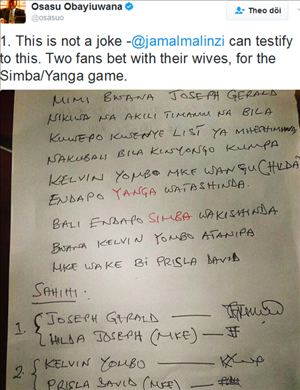 Osasu Obayiuwana
@osasuo
Theo dõi
1. This is not a joke -@jamalmalinzi can testify
to this. Two fans bet with their wives, for the
Simba/Yanga game.
MIMI BWANA JOSEPH GERALD
NIKIWA NA AKILI TIMAMU NA BILA
KUWEPO KWENYE LIST YA
NAKUBALI BILA KINYONGO KUMPA
KELVIN YOMBO MKE WANGU (HILDA)
ENDAPO YANGA WATASHINDA.
BALI ENDAPO SIMBA WAKISHINDA
BWANA KELVIN YOMBO ATANIPA
MKE WAKE BI PRISLA DAVID
SAHIHI:
1. JOSEPH GERALD
HILDA JOSEPH (MKE)
2. KELVIN YOMBO
PRISLA DAVID (MKE)